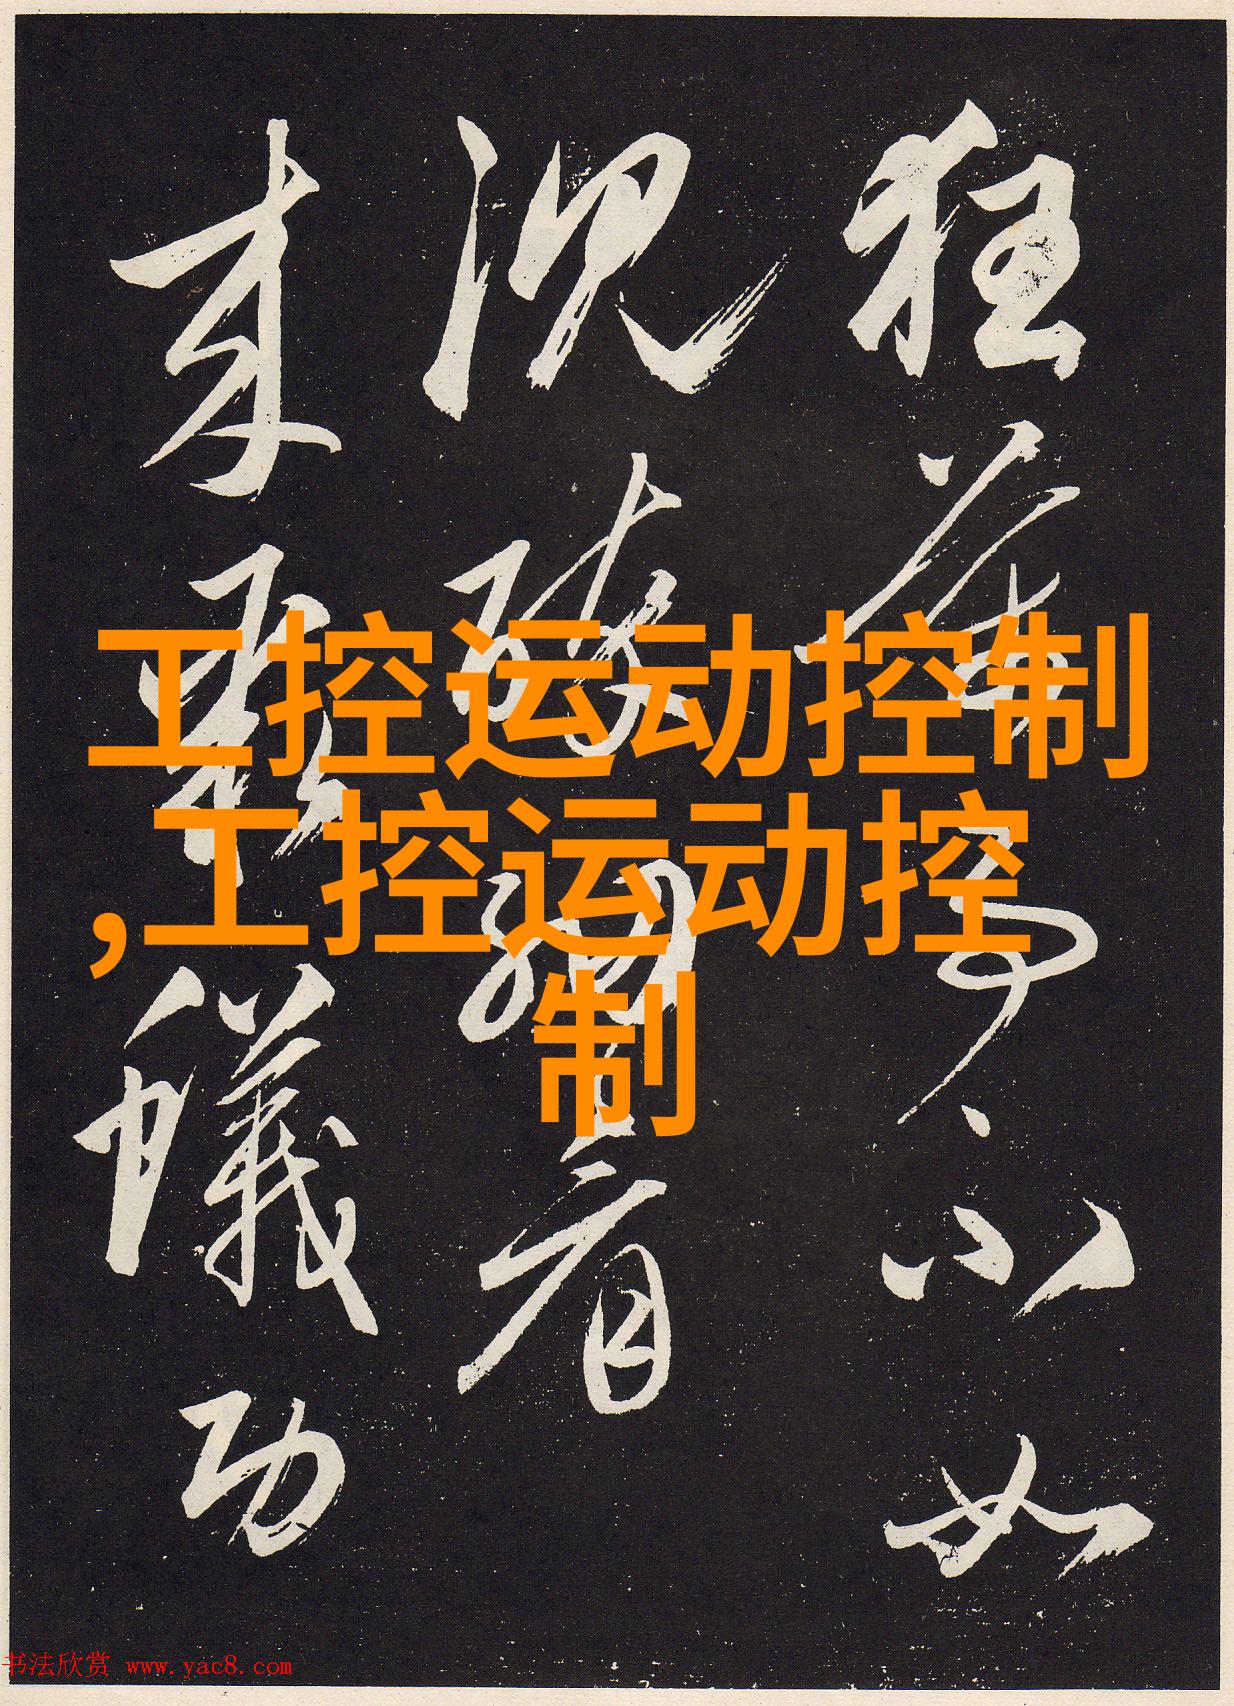 工控运动控制
,工控运动控
制
狂 不如
况 細看
蟻功
书法欣赏 www.yac8.com